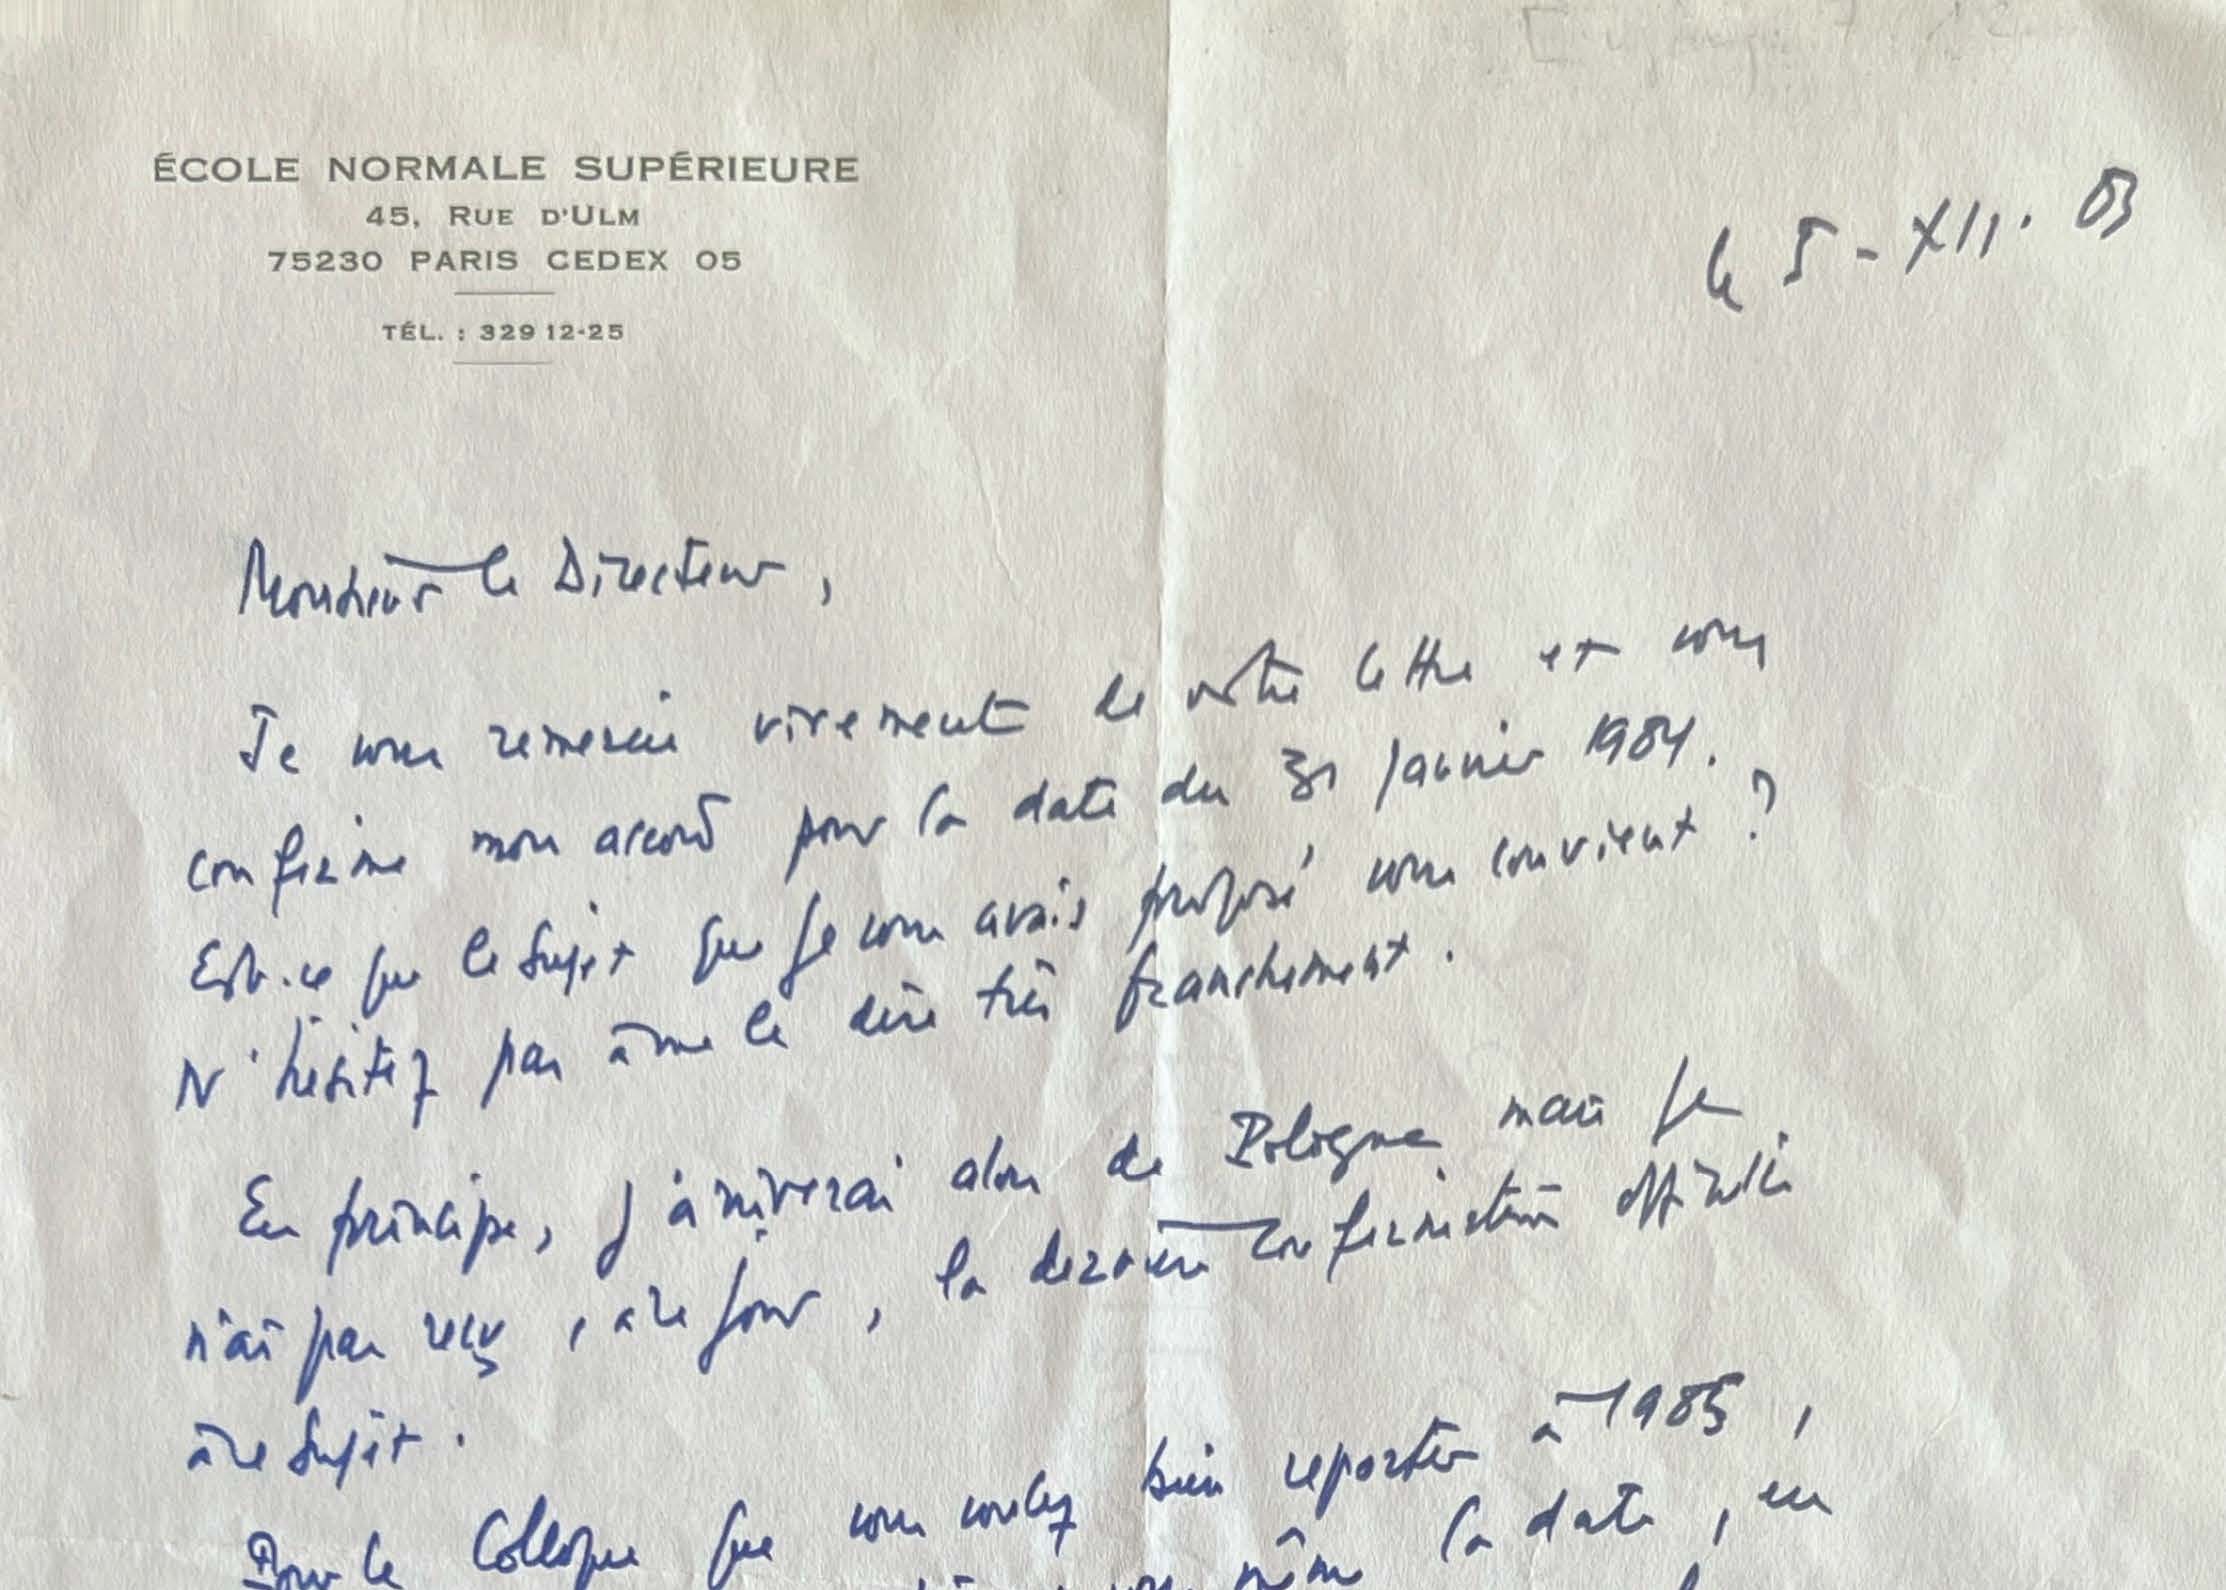 ÉCOLE NORMALE SUPÉRIEURE
45, RUE D'ULM
75230 PARIS CEDEX 05
TÉL. : 329 12-25
le 5 - XII. 83
Monsieur le Directeur,
Je vous remercie vivement de votre lettre et vous
confirme mon accord pour la date du 31 janvier 1984.
Est-ce que le sujet que je vous avais proposé vous convient ?
N'hésitez pas à me le dire très franchement.
En principe, j'arriverai alors de Pologne mais je
n'ai pas reçu, à ce jour, la dernière confirmation officielle
à ce sujet.
Pour le Colloque que vous voulez bien reporter à 1985,
même la date, en